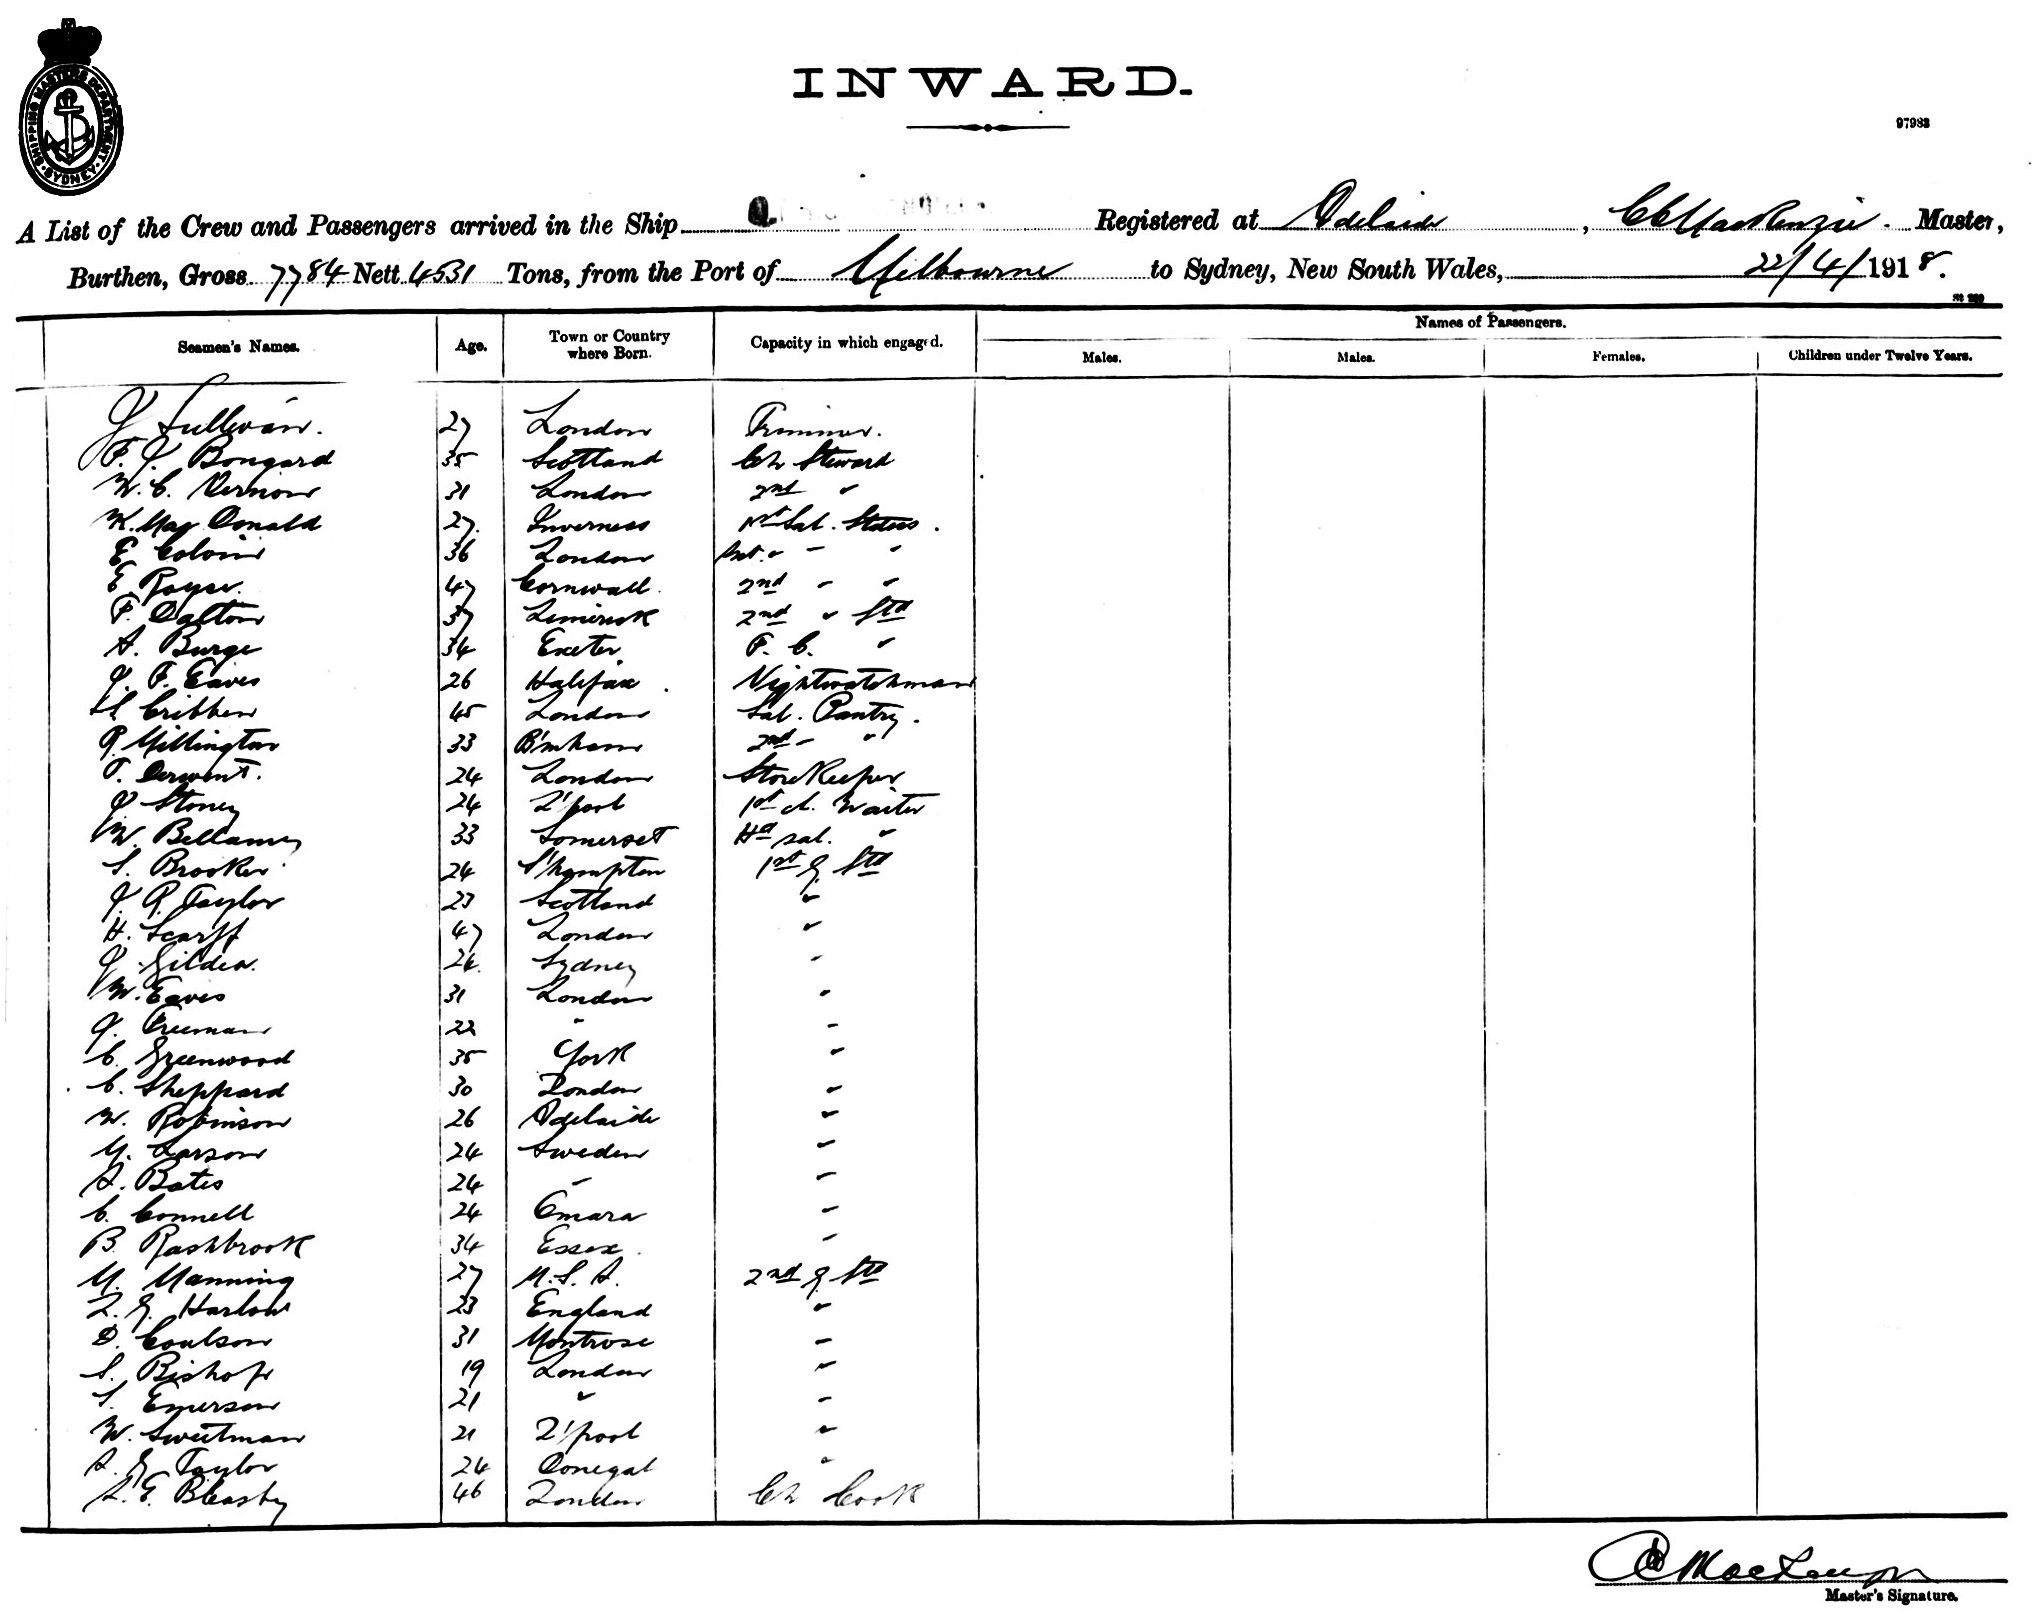 SHIPPING MASTERS DEPARTMENT
SYDNEY
INWARD.
97983
A List of the Crew and Passengers arrived in the Ship Registered at Adelaide, CC MacKenzie. Master,
Burthen, Gross 7784 Nett 4531 Tons, from the Port of Melbourne to Sydney, New South Wales, 22/4/1918.
Names of Passengers.
Seamen's Names. Age. Town or Country where Born. Capacity in which engaged. Males. Males. Females. Children under Twelve Years.
J Sullivan. 27 London Trimmer.
F. J. Bongard 35 Scotland Ch Steward
W. C. Vernon 31 London 2nd "
K. Mac Donald 27. Inverness 1st Sal. Stdess.
E Colvin 36 London " " "
E Royse. 47 Cornwall. 2nd " "
F. Dalton 37 Limerick 2nd " Std
A. Burge 34 Exeter F. C. "
J. F. Eaves 26 Halifax. Nightwatchman
H Cribben 45 London Sal. Pantry.
R Millington 33 B'mham 2nd " "
T. Derwent. 24 London StoreKeeper
J Stoney 24 L'pool 1st cl. Waiter
W. Bellamy 33 Somerset Hd sal. "
S. Brooker 24 S'hampton 1st G. Std
J. R. Taylor 23 Scotland "
H. Scarff 47 London "
J Gildea. 24. Sydney "
W. Eaves 31 London "
J. Freeman 22 " "
C. Greenwood 35 York "
C. Sheppard 30 London "
W. Robinson 26 Adelaide "
M. Larson 24 Sweden "
A. Bates 24 " "
C. Connell 24 Omara "
B. Rashbrook 34 Essex. "
M. Manning 27 U. S. A. 2nd G Std
L. G. Harlow 23 England "
D. Coulson 31 Montrose "
S. Bishop 19 London "
S. Emerson 21 " "
W. Sweetman 21 L'pool "
A. G Taylor 24 Donegal "
A. E. Bleasby 46 London Ch Cook
CC MacKenzie
Master's Signature.